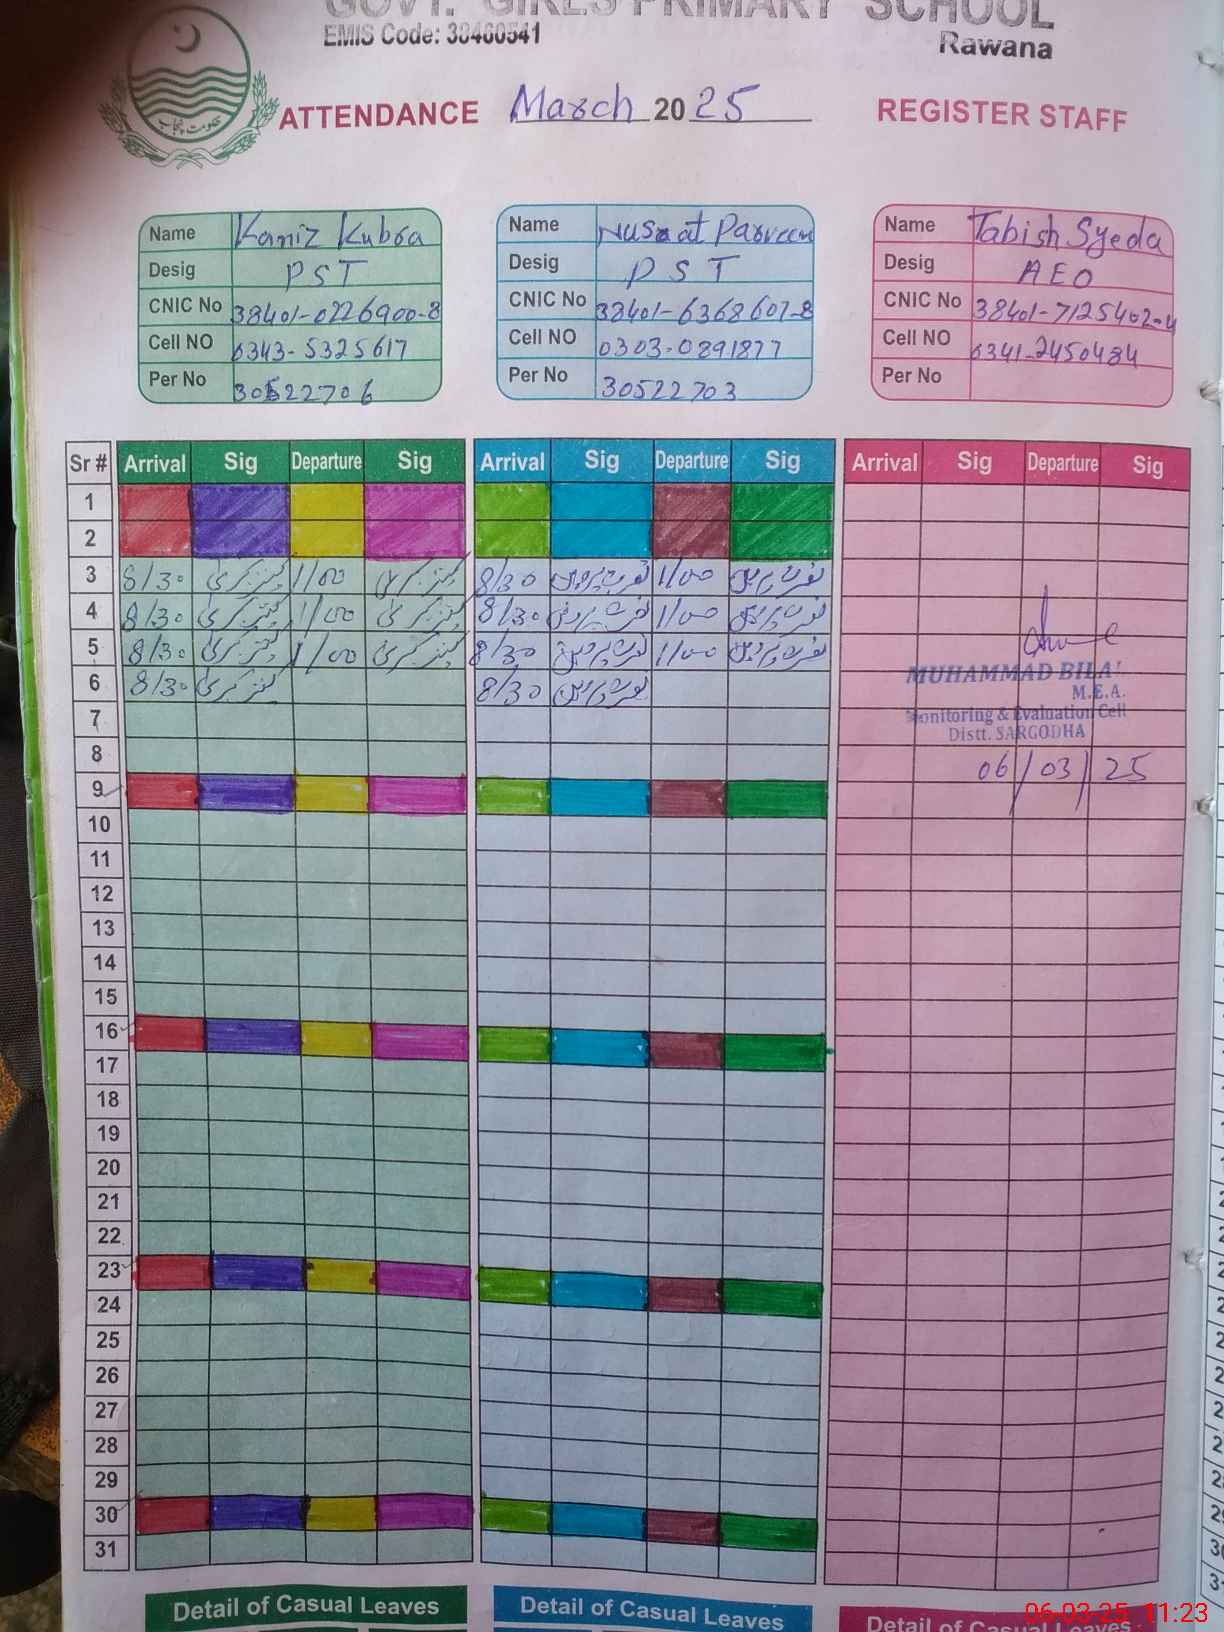 GOVT. GIRLS PRIMARY SCHOOL
EMIS Code: 38460541
Rawana
حکومت پنجاب
ATTENDANCE March 2025 REGISTER STAFF
Name Kaniz Kubra
Desig PST
CNIC No 38401-0226900-8
Cell NO 0343-5325617
Per No 30522706
Name Nusrat Parveen
Desig PST
CNIC No 38401-6368607-8
Cell NO 0303-0891877
Per No 30522703
Name Tabish Syeda
Desig AEO
CNIC No 38401-7125402-4
Cell NO 0341-2450484
Per No
Sr # Arrival Sig Departure Sig Arrival Sig Departure Sig Arrival Sig Departure Sig
1
2
3 8/30 کنیز کبری 1/00 کنیز کبری 8/30 نصرت پروین 1/00 نصرت پروین
4 8/30 کنیز کبری 1/00 کنیز کبری 8/30 نصرت پروین 1/00 نصرت پروین
5 8/30 کنیز کبری 1/00 کنیز کبری 8/30 نصرت پروین 1/00 نصرت پروین
6 8/30 کنیز کبری 8/30 نصرت پروین
MUHAMMAD BILAL
M.E.A.
Monitoring & Evaluation Cell
Distt. SARGODHA
06/03/25
7
8
9
10
11
12
13
14
15
16
17
18
19
20
21
22
23
24
25
26
27
28
29
30
31
Detail of Casual Leaves Detail of Casual Leaves Detail of Casual Leaves
06-03-25 11:23